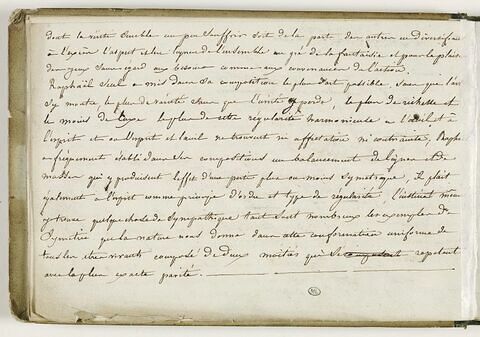 dont la vérité semble un peu souffrir soit de la part des autres en diversifiant
à l'excès l'aspect et les lignes de l'ensemble au gré de la fantaisie et pour le plaisir
des yeux sans égard aux besoins comme aux convenances de l'action.
Raphaël seul a mis dans sa composition le plus d'art possible, sans que l'art
s'y montre le plus de variété sans que l'unité y perde, le plus de richesse et
le moins de luxe le plus de cette régularité harmonieuse à l'œil et à
l'esprit et où l'esprit et l'œil ne trouvent ni affectation ni contrainte, Raphaël
a fréquemment établi dans ses compositions un balancement de lignes et de
masses qui y produisent l'effet d'une partie plus ou moins symétrique, il plait
également à l'esprit comme principe d'ordre et type de régularité, l'instinct même
y trouve quelque chose de sympathique tant sont nombreux les exemples de
symétrie que la nature nous donne dans cette conformation uniforme de
tous les êtres vivants composés de deux moitiés qui se rapportent
avec la plus exacte parité.